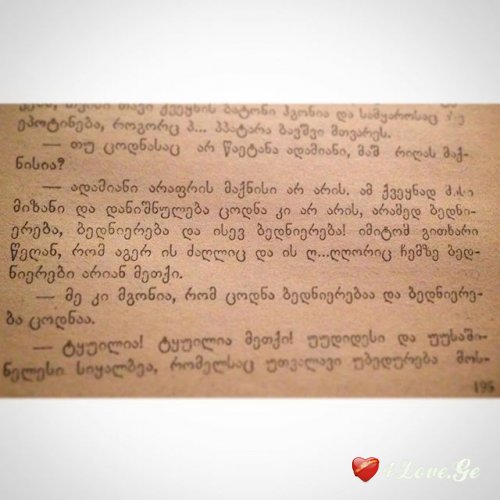 თავი ქვეყნის ბატონი ჰგონია და სამყაროსაც
ეპოტინება, როგორც პ... პპატარა ბავშვი მთვარეს.
— თუ ცოდნასაც არ წაეტანა ადამიანი, მაშ რიღას მაქ-
ნისია?
— ადამიანი არაფრის მაქნისი არ არის. ამ ქვეყნად მისი
მიზანი და დანიშნულება ცოდნა კი არ არის, არამედ ბედნი-
ერება, ბედნიერება და ისევ ბედნიერება! იმიტომ გითხარი
წეღან, რომ აგერ ის ძაღლიც და ის ღ...ღღორიც ჩემზე ბედ-
ნიერები არიან მეთქი.
— მე კი მგონია, რომ ცოდნა ბედნიერებაა და ბედნიერე-
ბა ცოდნაა.
— ტყუილია! ტყუილია მეთქი! უუდიდესი და უუსაში-
ნელესი სიყალბეა, რომელსაც უთვალავი უბედურება მოს-
195
iLove.Ge